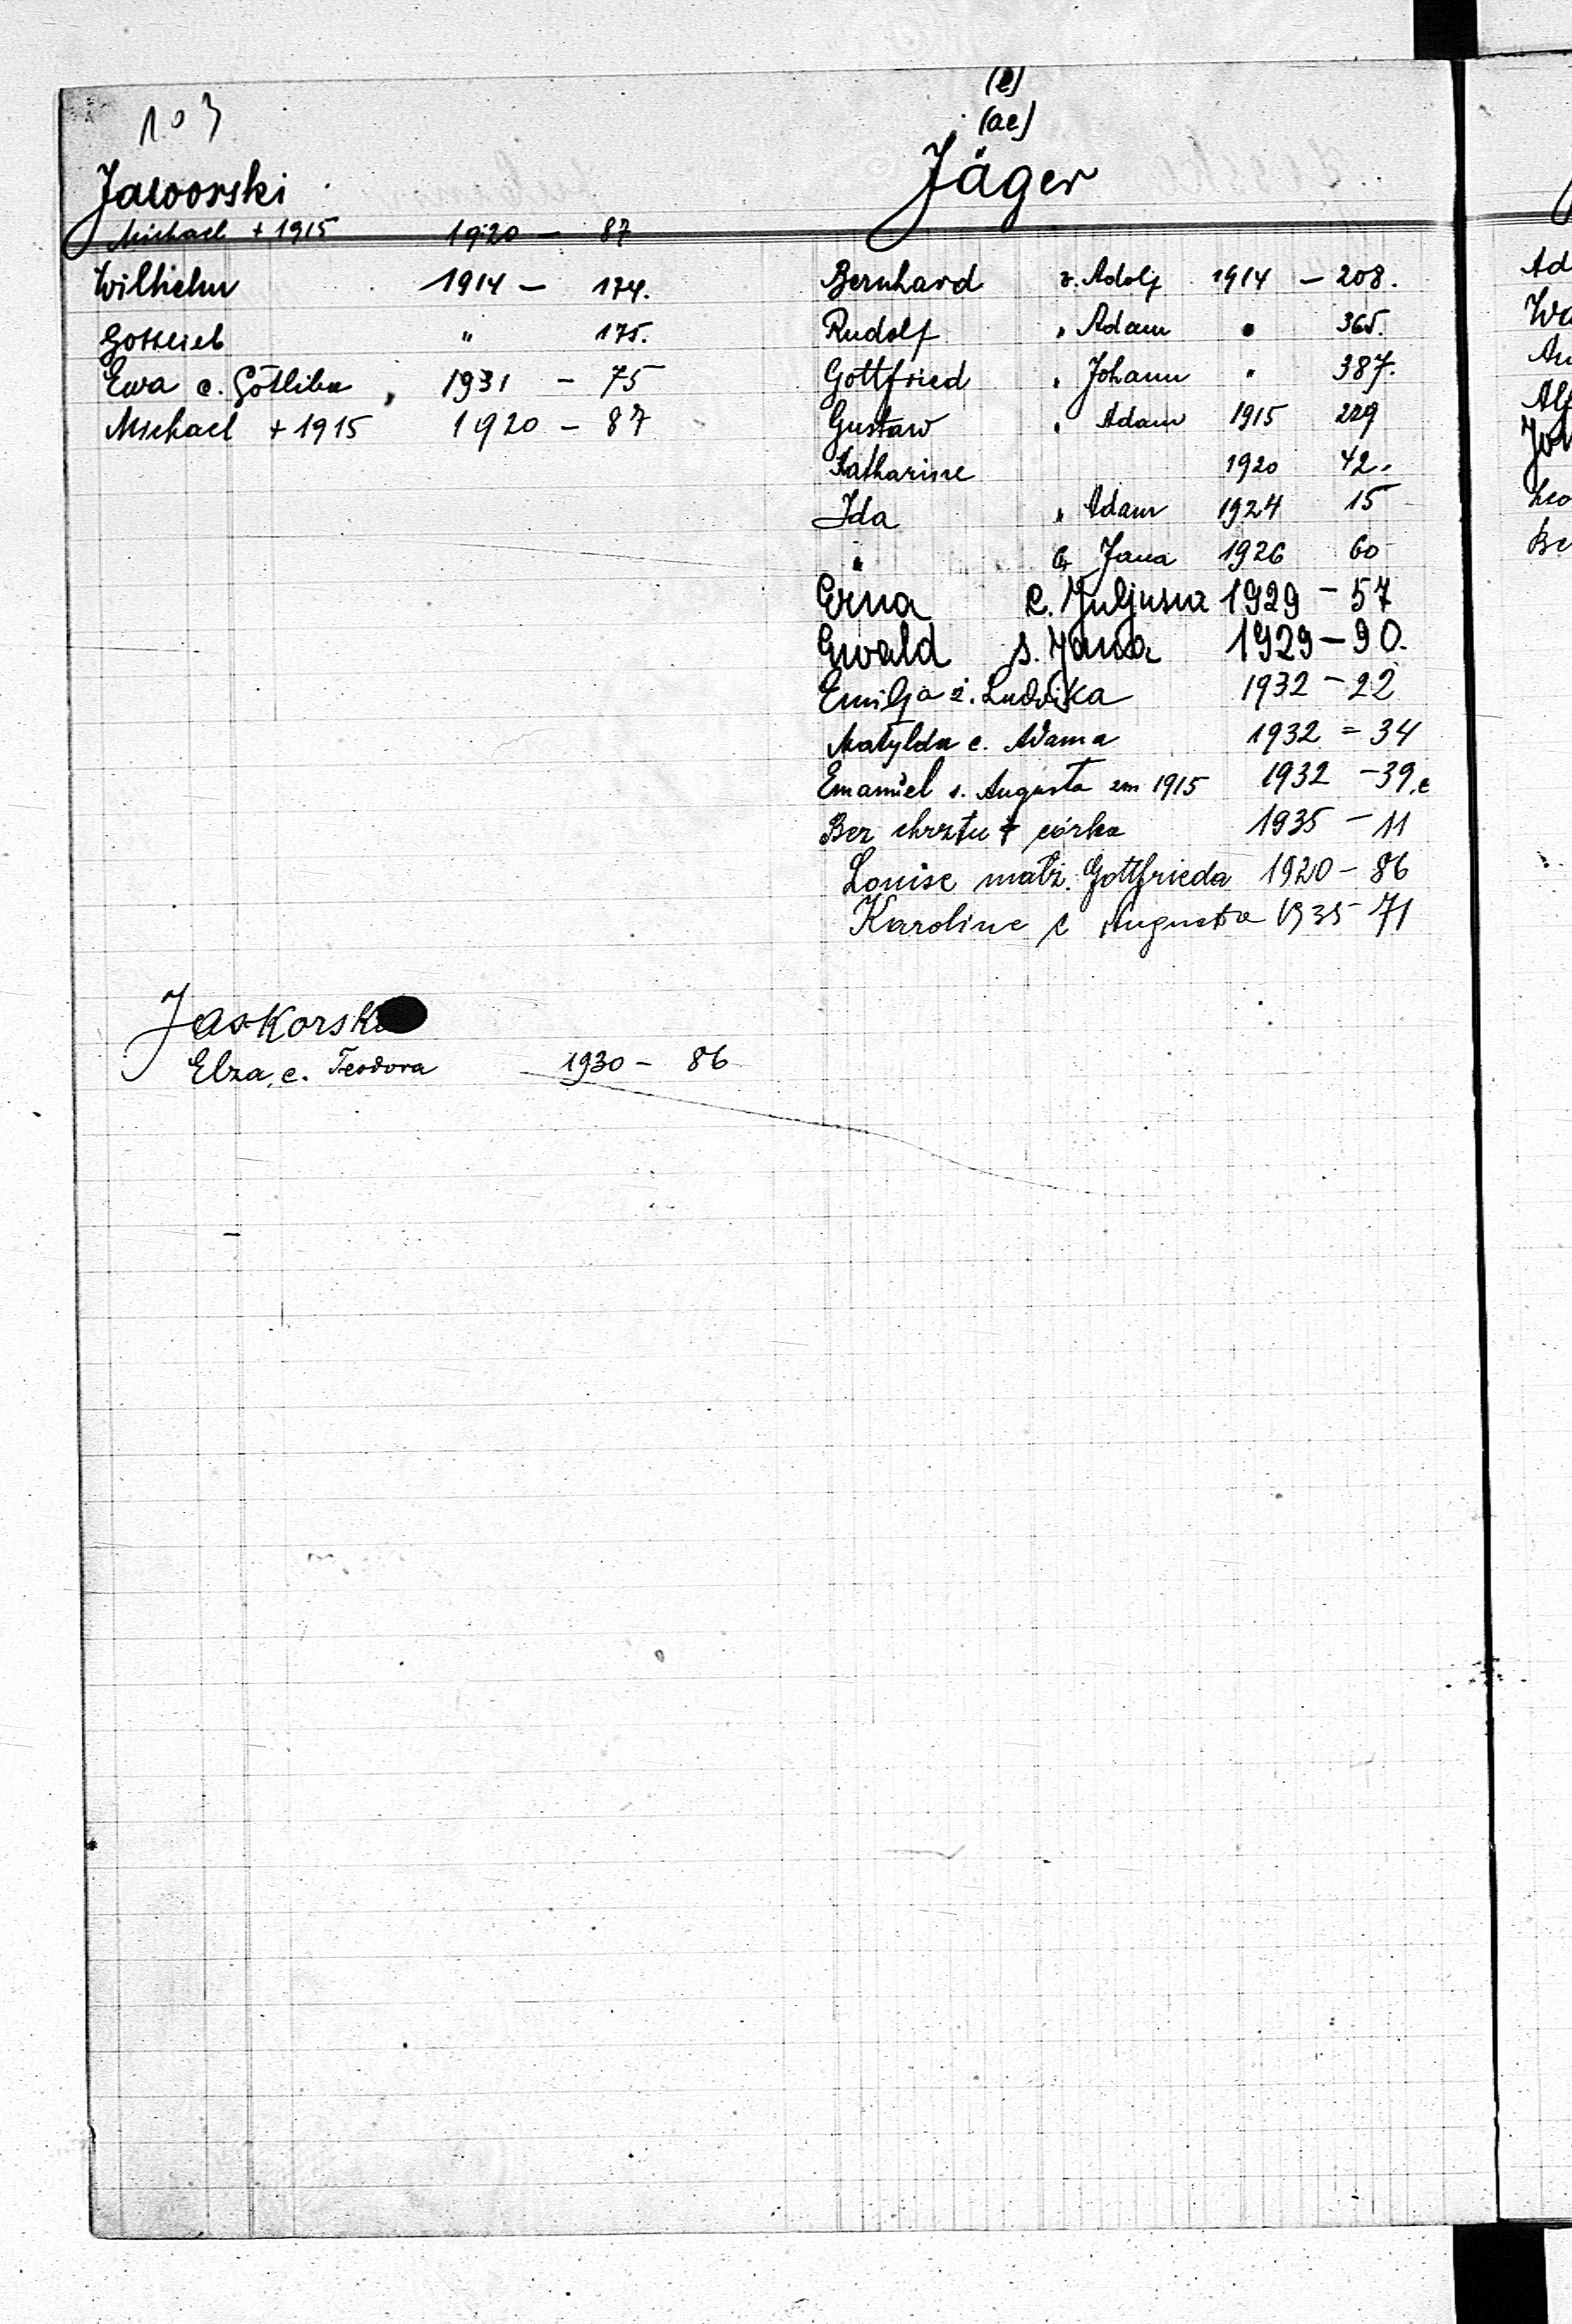 103
Jaworski
Michael + 1915 1920 — 87
Wilhelm 1914 — 174.
Gottlieb " 175.
Ewa c. Gotliba, 1931 — 75
Michael + 1915 1920 — 87
Jaskorski
Elza, c. Teodora 1930 — 86
(e)
(ae)
Jäger
Bernhard z. Adolf 1914 — 208.
Rudolf " Adam " 365.
Gottfried " Johann " 387.
Gustaw " Adam 1915 229
Katharine 1920 42.
Ida " Adam 1924 15
" Jana 1926 60
Erna c. Juljusza 1929 — 57
Ewald s. Jana 1929 — 90.
Emilja ż. Ludwika 1932 — 22
Matylda c. Adama 1932 = 34
Emanuel s. Augusta zm 1915 1932 — 39.
Bez chrztu + córka 1935 — 11
Louise małż. Gottfrieda 1920 — 86
Karoline c Augusta 1935 71
Ad
Wa
Au
Al
Jo
Leo
Be